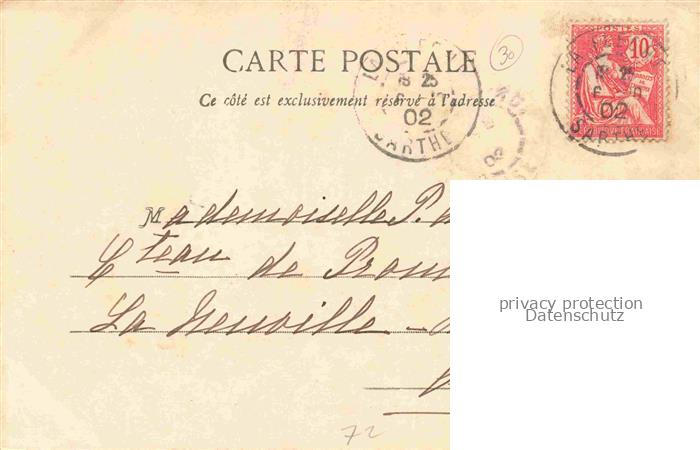 CARTE POSTALE
Ce côté est exclusivement réservé à l'adresse
30
POSTES
10
RÉPUBLIQUE FRANÇAISE
25
02
SARTHE
02
SARTHE
Mademoiselle P.
Cteau de
La Neuville -
privacy protection
Datenschutz
72